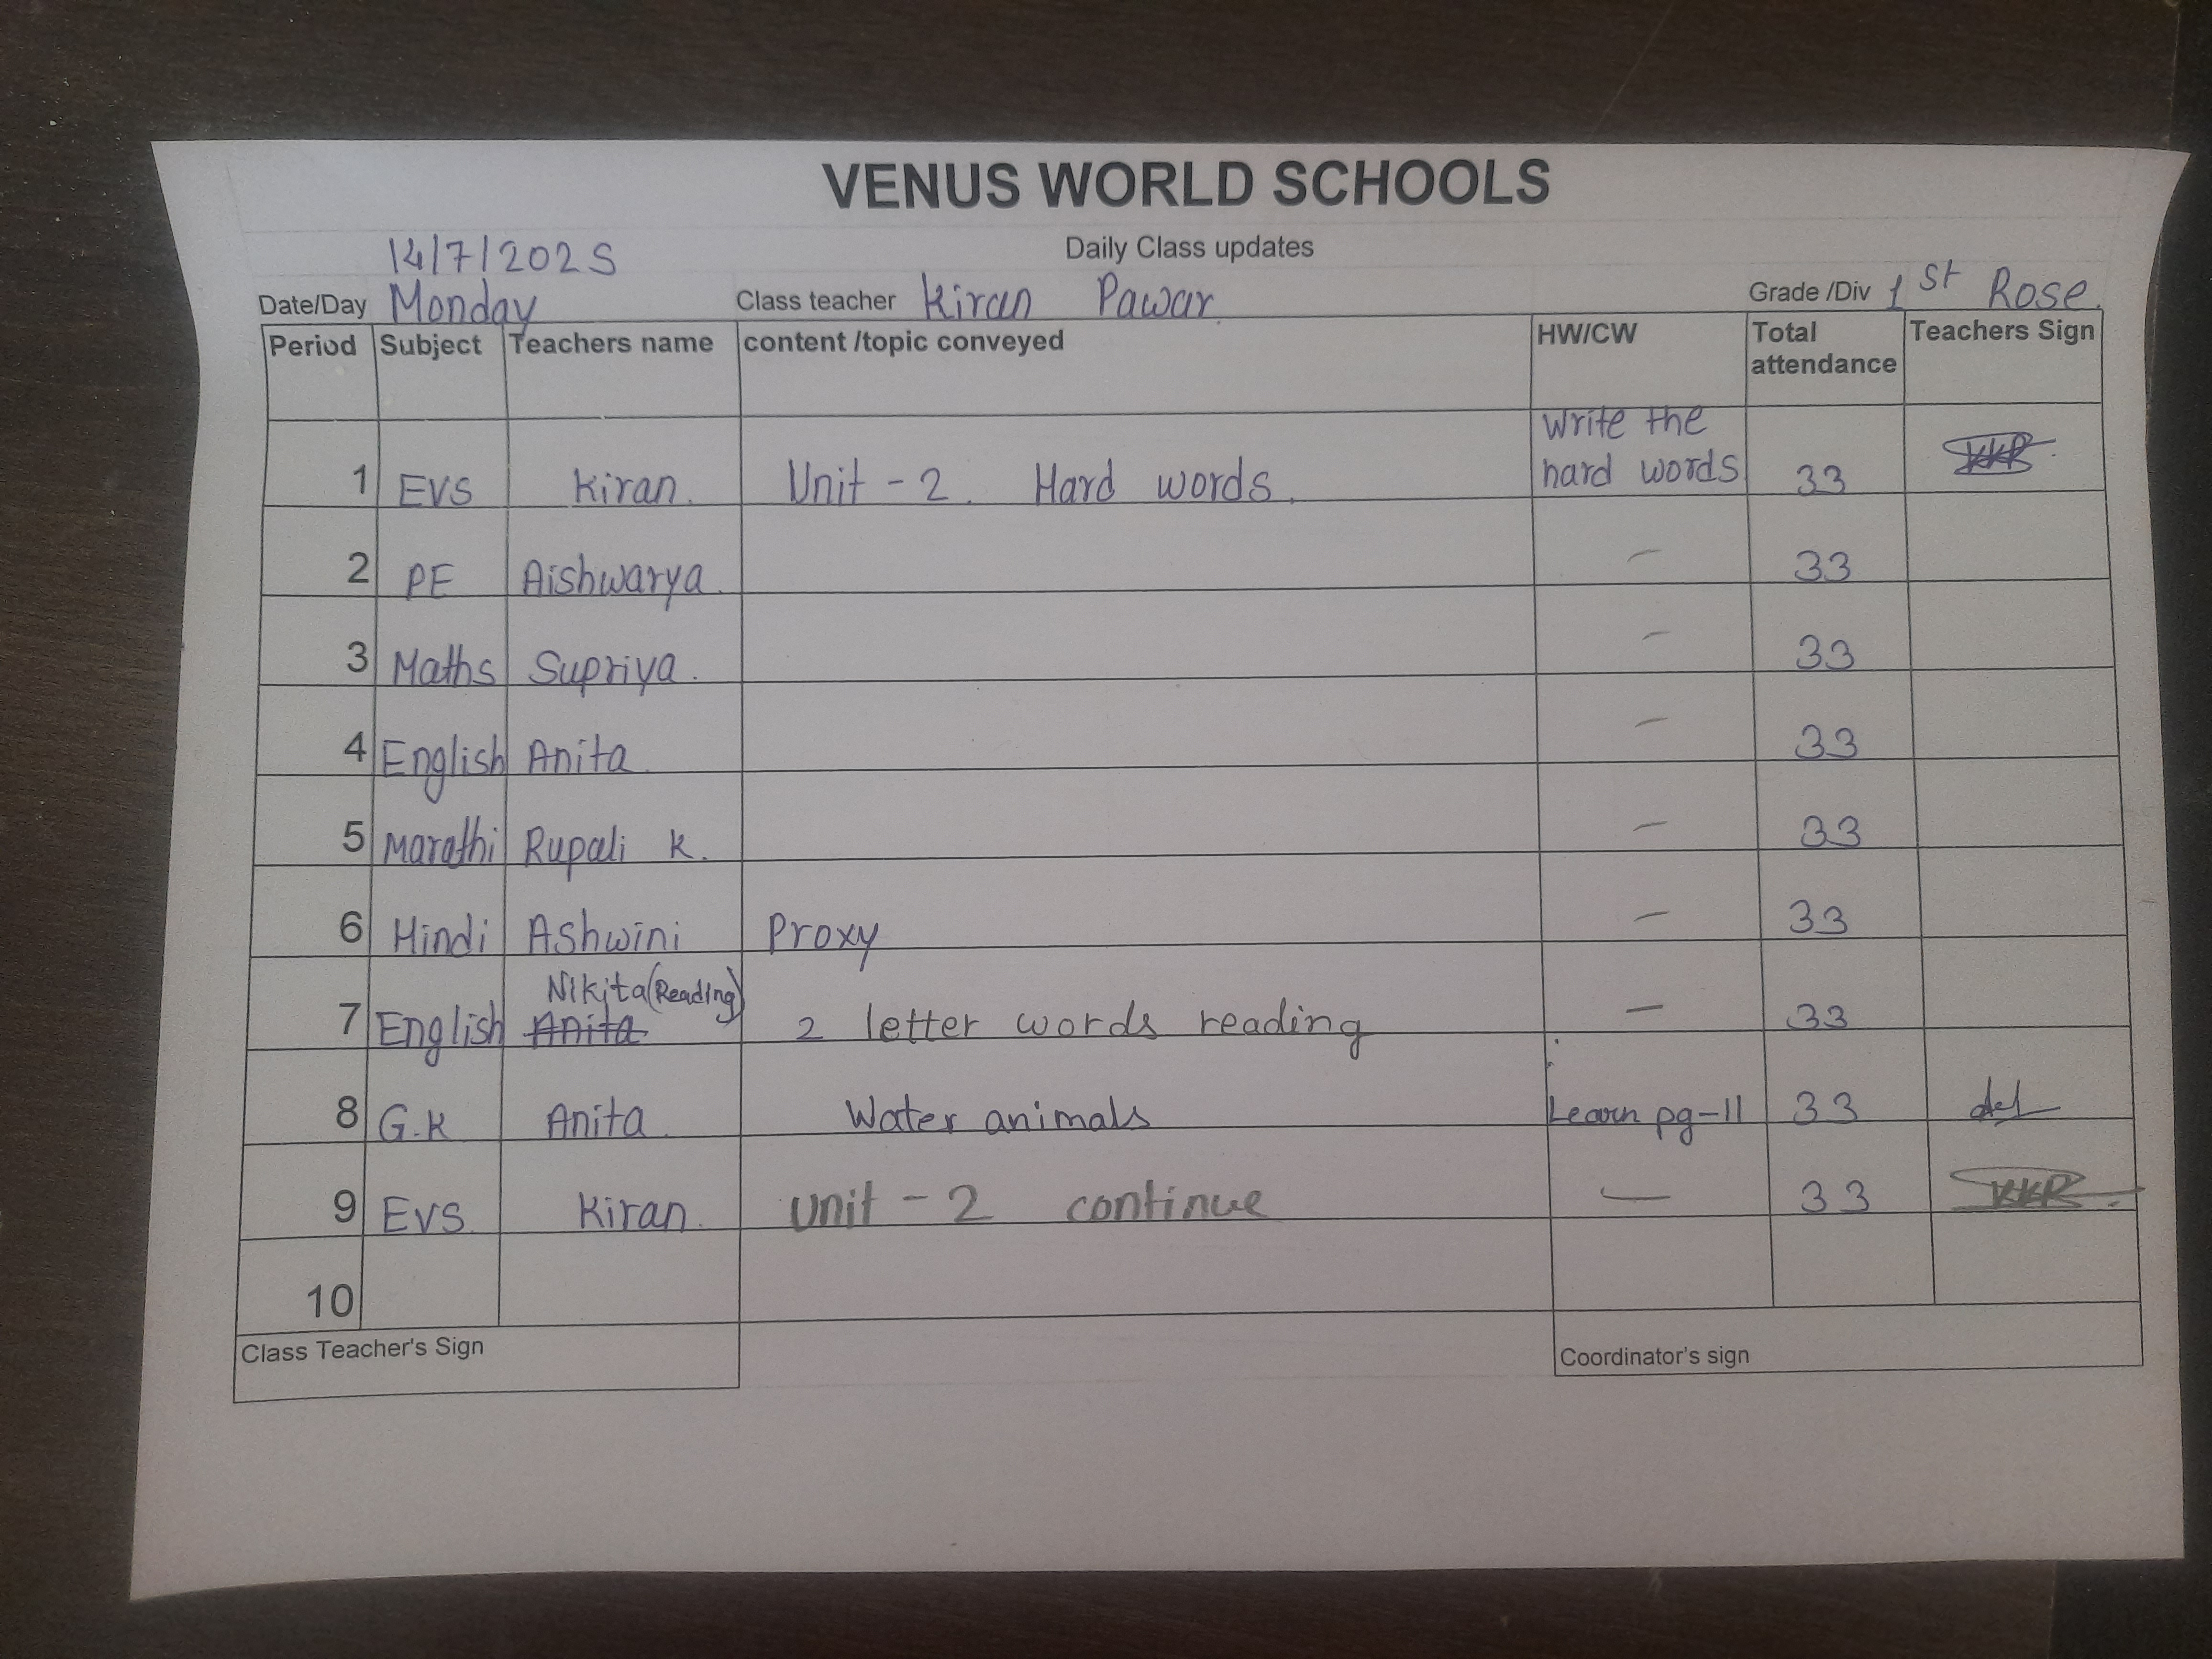 VENUS WORLD SCHOOLS
Daily Class updates
14/7/2025
Date/Day Monday Class teacher Kiran Pawar Grade /Div 1 st Rose.
Period Subject Teachers name content /topic conveyed HW/CW Total attendance Teachers Sign
1 EVS Kiran. Unit - 2. Hard words. Write the hard words 33
2 PE Aishwarya. - 33
3 Maths Supriya. - 33
4 English Anita. - 33
5 Marathi Rupali K. - 33
6 Hindi Ashwini Proxy - 33
7 English Nikita (Reading) Anita 2 letter words reading - 33
8 G.K Anita. Water animals Learn pg-11 33
9 EVS. Kiran. Unit - 2 continue - 33
10
Class Teacher's Sign Coordinator's sign